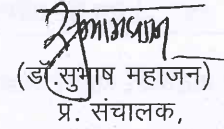 (डॉ.सुभाष महाजन)
प्र. संचालक,